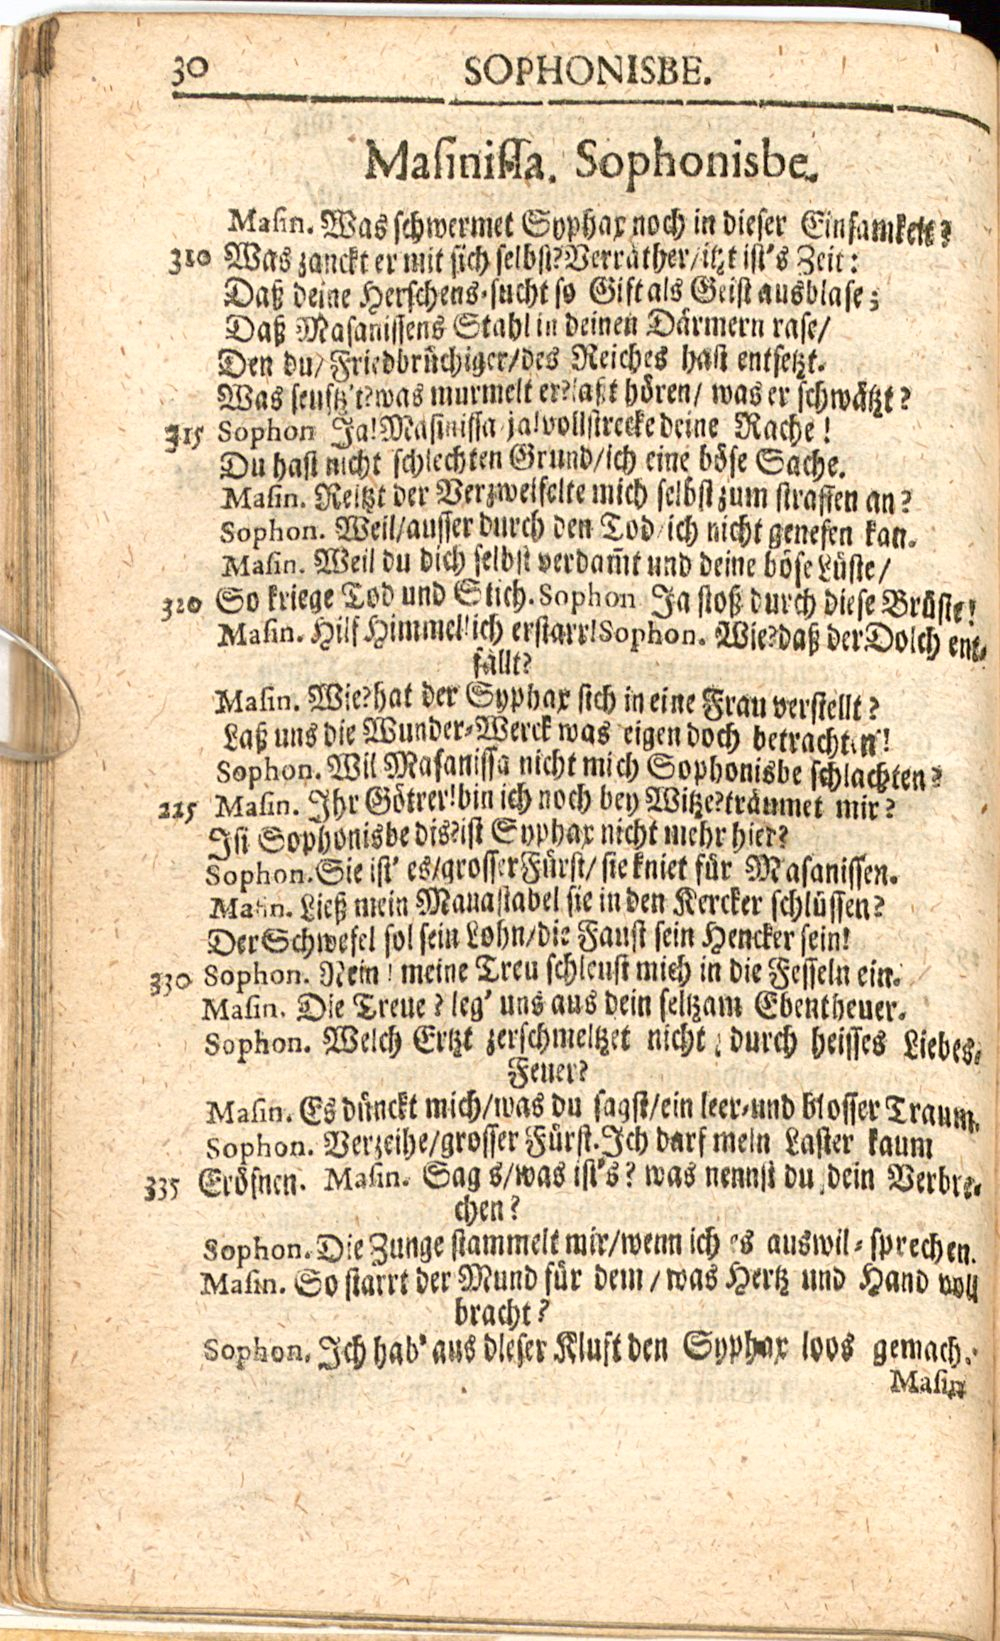 30 SOPHONISBE.
Masinissa. Sophonisbe.
Masin. Was schwermet Syphax noch in dieser Einsamkeit?
310 Was zanckt er mit sich selbst? Verräther/ itzt ist's Zeit:
Daß deine Herschens-sucht so Gift als Geist ausblase;
Daß Masanissens Stahl in deinen Därmern rase/
Den du/ Friedbrüchiger/ des Reiches hast entsetzt.
Was seuftz't? was murmelt er? laßt hören/ was er schwätzt?
315 Sophon Ja! Masinissa/ ja! vollstrecke deine Rache!
Du hast nicht schlechten Grund/ ich eine böse Sache.
Masin. Reitzt der Verzweifelte mich selbst zum straffen an?
Sophon. Weil/ ausser durch den Tod/ ich nicht genesen kan.
Masin. Weil du dich selbst verdam̃t und deine böse Lüste/
320 So kriege Tod und Stich. Sophon Ja stoß durch diese Brüste!
Masin. Hilf Himmel! ich erstarr! Sophon. Wie? daß der Dolch ent-
fällt?
Masin. Wie? hat der Syphax sich in eine Frau verstellt?
Laß uns die Wunder-Werck was eigen doch betrachten!
Sophon. Wil Masanissa nicht mich Sophonisbe schlachten?
225 Masin. Ihr Götter! bin ich noch bey Witze? träumet mir?
Ist Sophonisbe dis? ist Syphax nicht mehr hier?
Sophon. Sie ist' es/ grosser Fürst/ sie kniet für Masanissen.
Masin. Ließ mein Manastabel sie in den Kercker schlüssen?
Der Schwefel sol sein Lohn/ die Faust sein Hencker sein!
330 Sophon. Nein! meine Treu schleust mich in die Fesseln ein.
Masin. Die Treue? leg' uns aus dein seltzam Ebentheuer.
Sophon. Welch Ertzt zerschmeltzet nicht durch heisses Liebes-
Feuer?
Masin. Es dünckt mich/ was du sagst/ ein leer-und blosser Traum.
Sophon. Verzeihe/ grosser Fürst. Ich darf mein Laster kaum
335 Eröfnen. Masin. Sag s/ was ist's? was nennst du dein Verbre-
chen?
Sophon. Die Zunge stammelt mir/ wenn ich es auswil-sprechen.
Masin. So starrt der Mund für dem/ was Hertz und Hand voll
bracht?
Sophon. Ich hab' aus dieser Kluft den Syphax loos gemach.
Masin